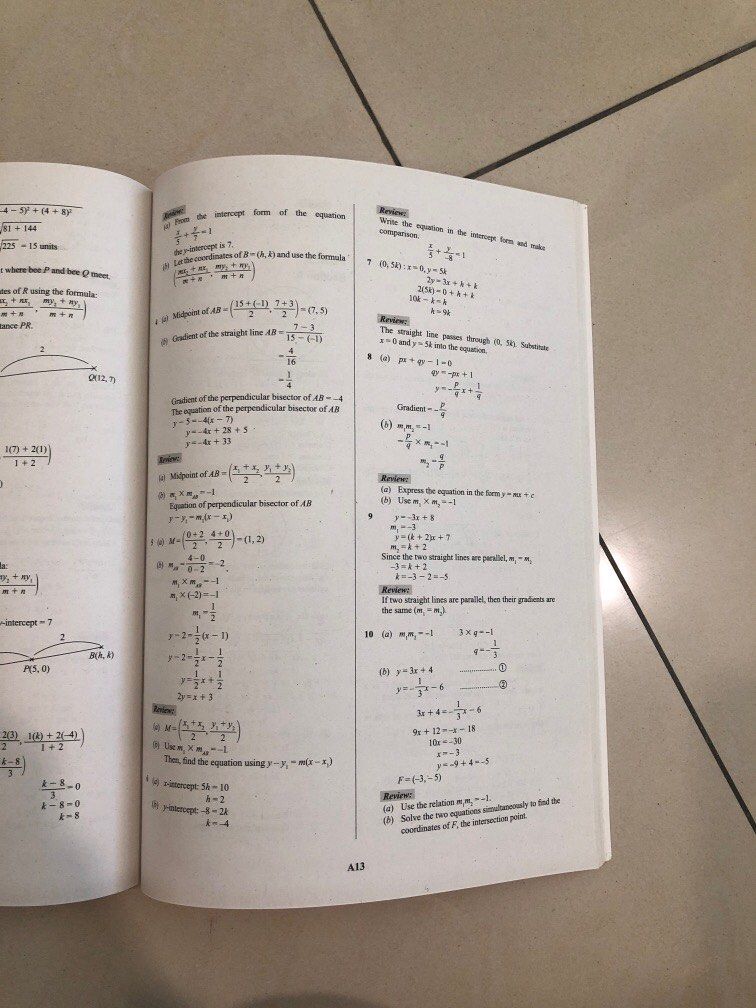 -4 - 5)² + (4 + 8)²
81 + 144
225 = 15 units
t where bee P and bee Q meet.
tes of R using the formula:
x₂ + nx₁ , my₂ + ny₁
m + n m + n
tance PR.
2
Q(12, 7)
1(7) + 2(1)
1 + 2
la:
ny₂ + ny₁
m + n
y-intercept = 7
2
B(h, k)
P(5, 0)
2(3) , 1(k) + 2(-4)
2 1 + 2
k - 8
3
k - 8 = 0
3
k - 8 = 0
k = 8
Review:
(a) From the intercept form of the equation
x/5 + y/7 = 1
the y-intercept is 7.
(b) Let the coordinates of B = (h, k) and use the formula
(mx₂ + nx₁ / m + n , my₂ + ny₁ / m + n)
4 (a) Midpoint of AB = (15 + (-1) / 2 , 7 + 3 / 2) = (7, 5)
(b) Gradient of the straight line AB = 7 - 3 / 15 - (-1)
= 4/16
= 1/4
Gradient of the perpendicular bisector of AB = -4
The equation of the perpendicular bisector of AB
y - 5 = -4(x - 7)
y = -4x + 28 + 5
y = -4x + 33
Review:
(a) Midpoint of AB = (x₁ + x₂ / 2 , y₁ + y₂ / 2)
(b) m₁ × m_AB = -1
Equation of perpendicular bisector of AB
y - y₁ = m₁(x - x₁)
5 (a) M = (0 + 2 / 2 , 4 + 0 / 2) = (1, 2)
(b) m_AB = 4 - 0 / 0 - 2 = -2
m₁ × m_AB = -1
m₁ × (-2) = -1
m₁ = 1/2
y - 2 = 1/2 (x - 1)
y - 2 = 1/2 x - 1/2
y = 1/2 x + 1/2
2y = x + 3
Review:
(a) M = (x₁ + x₂ / 2 , y₁ + y₂ / 2)
(b) Use m₁ × m_AB = -1
Then, find the equation using y - y₁ = m(x - x₁)
6 (a) x-intercept: 5h = 10
h = 2
(b) y-intercept: -8 = 2k
k = -4
Review:
Write the equation in the intercept form and make
comparison.
x/5 + y/-8 = 1
7 (0, 5k) : x = 0, y = 5k
2y = 3x + h + k
2(5k) = 0 + h + k
10k - k = h
h = 9k
Review:
The straight line passes through (0, 5k). Substitute
x = 0 and y = 5k into the equation.
8 (a) px + qy - 1 = 0
qy = -px + 1
y = -p/q x + 1/q
Gradient = -p/q
(b) m₁m₂ = -1
-p/q × m₂ = -1
m₂ = q/p
Review:
(a) Express the equation in the form y = mx + c
(b) Use m₁ × m₂ = -1
9 y = -3x + 8
m₁ = -3
y = (k + 2)x + 7
m₂ = k + 2
Since the two straight lines are parallel, m₁ = m₂
-3 = k + 2
k = -3 - 2 = -5
Review:
If two straight lines are parallel, then their gradients are
the same (m₁ = m₂).
10 (a) m₁m₂ = -1 3 × q = -1
q = -1/3
(b) y = 3x + 4 .................. ①
y = -1/3 x - 6 .................. ②
3x + 4 = -1/3 x - 6
9x + 12 = -x - 18
10x = -30
x = -3
y = -9 + 4 = -5
F = (-3, -5)
Review:
(a) Use the relation m₁m₂ = -1.
(b) Solve the two equations simultaneously to find the
coordinates of F, the intersection point.
A13